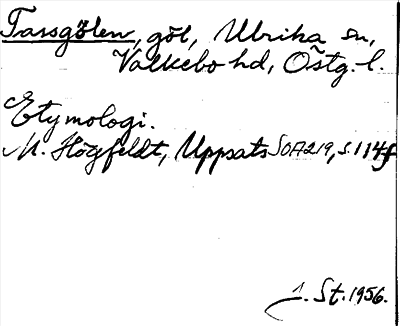 Tarsgölen, göl, Ulrika sn,
Valkebo hd, Östg. l.
Etymologi.
M. Högfeldt, Uppsats SOA219, s. 114f
J. St. 1956.